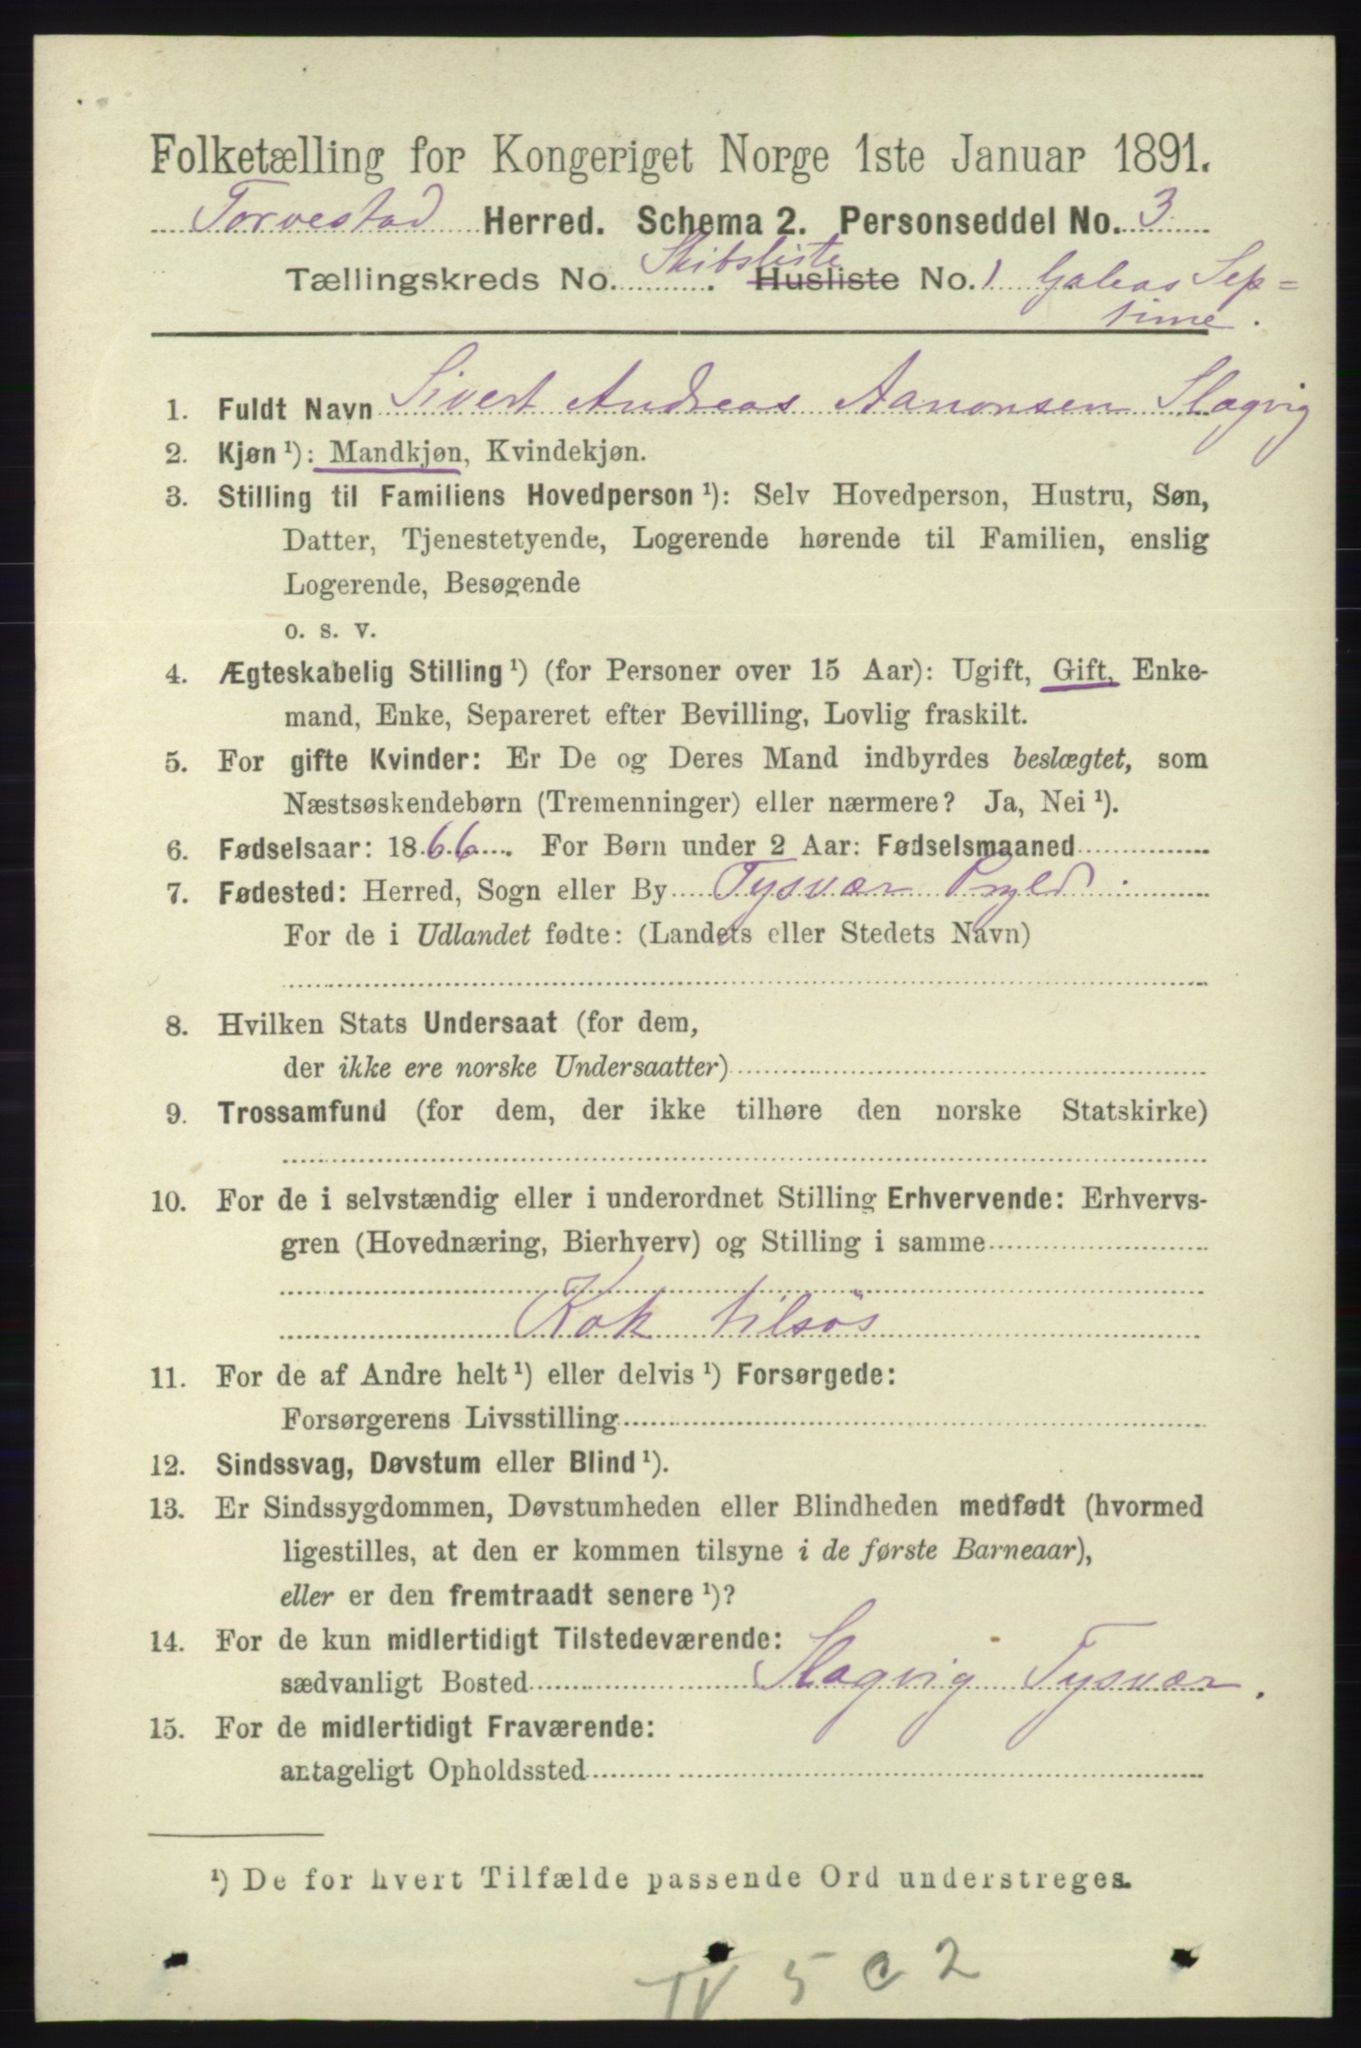 Folketælling for Kongeriget Norge 1ste Januar 1891.
Torvestad Herred. Schema 2. Personseddel No. 3
Tællingskreds No. Skibsliste Husliste No. 1 Galeas Sep=
time.
1. Fuldt Navn Sivert Andreas Aanonsen Slagvig
2. Kjøn ¹): Mandkjøn, Kvindekjøn.
3. Stilling til Familiens Hovedperson ¹): Selv Hovedperson, Hustru, Søn,
Datter, Tjenestetyende, Logerende hørende til Familien, enslig
Logerende, Besøgende
o. s. v.
4. Ægteskabelig Stilling ¹) (for Personer over 15 Aar): Ugift, Gift, Enke-
mand, Enke, Separeret efter Bevilling, Lovlig fraskilt.
5. For gifte Kvinder: Er De og Deres Mand indbyrdes beslægtet, som
Næstsøskendebørn (Tremenninger) eller nærmere? Ja, Nei ¹).
6. Fødselsaar: 1866. For Børn under 2 Aar: Fødselsmaaned
7. Fødested: Herred, Sogn eller By Tysvær
For de i Udlandet fødte: (Landets eller Stedets Navn)
8. Hvilken Stats Undersaat (for dem,
der ikke ere norske Undersaatter)
9. Trossamfund (for dem, der ikke tilhøre den norske Statskirke)
10. For de i selvstændig eller i underordnet Stilling Erhvervende: Erhvervs-
gren (Hovednæring, Bierhverv) og Stilling i samme
Kok tilsøs
11. For de af Andre helt ¹) eller delvis ¹) Forsørgede:
Forsørgerens Livsstilling
12. Sindssvag, Døvstum eller Blind ¹).
13. Er Sindssygdommen, Døvstumheden eller Blindheden medfødt (hvormed
ligestilles, at den er kommen tilsyne i de første Barneaar),
eller er den fremtraadt senere ¹)?
14. For de kun midlertidigt Tilstedeværende:
sædvanligt Bosted Slagvig Tysvær.
15. For de midlertidigt Fraværende:
antageligt Opholdssted
¹) De for hvert Tilfælde passende Ord understreges.
IV 5 c 2